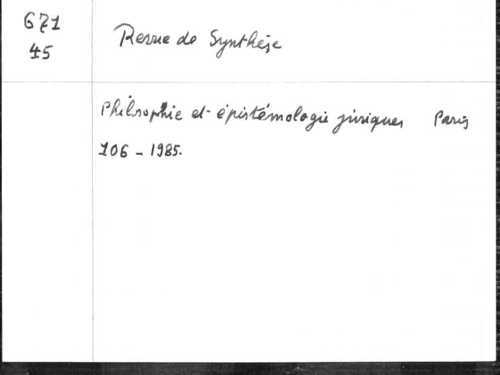 671
45
Revue de Synthèse
Philsophie et épistémologie juriques Paris
106 - 1985.